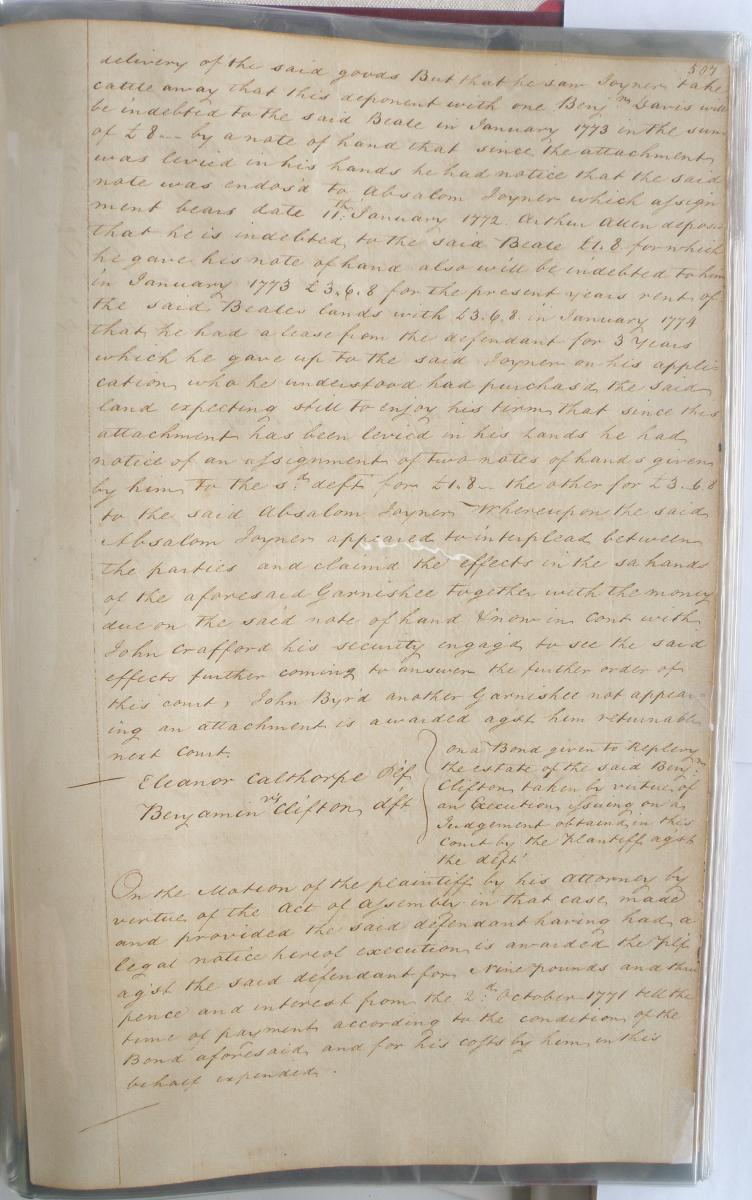 507
delivery of the said goods But that he saw Joyner take
cattle away that this deponent with one Benjn Davis will
be indebted to the said Beale in January 1773 in the sum
of £8 -- by a note of hand that since the attachment
was levied in his hands he had notice that the said
note was endos'd to Absalom Joyner which assign
ment bears date 11th: January 1772. Arthur Allen deposes
that he is indebted to the said Beale £1.8 for which
he gave his note of hand also will be indebted to him
in January 1773 £3.6.8 for the present years rent of
the said Beales lands with £3.6.8 in January 1774
that he had a lease from the defendant for 3 Years
which he gave up to the said Joyner on his appli
cation who he understood had purchas'd the said
land expecting still to enjoy his term that since this
attachment has been levied in his hands he had
notice of an assignment of two notes of hands given
by him to the sd deft for £1.8 -- the other for £3..6.8
to the said Absalom Joyner Whereupon the said
Absalom Joyner appeared to interplead between
the parties and claim'd the effects in the sa hands
of the aforesaid Garnishee together with the money
due on the said note of hand & now in Cont with
John Crafford his security engag'd to see the said
effects further coming to answer the further order of
this court, John Byrd another Garnishee not appear-
ing an attachment is awarded agst him returnable
next Court.
Eleanor Calthorpe Plf
vs
Benjamin Clifton dft
on a Bond given to Replevy
the estate of the said Benjn
Clifton taken by virtue of
an Execution issuing on a
Judgement obtain'd in this
Court by the Plantiff agst
the deft
On the Motion of the plaintiff by his attorney by
virtue of the Act of Assembly in that case made
and provided the said defendant having had a
legal notice hereof execution is awarded the Plf
agst the said defendant for Nine pounds and three
pence and interest from the 2d October 1771 till the
time of payment according to the condition of the
Bond aforesaid and for his costs by him in this
behalf expended.